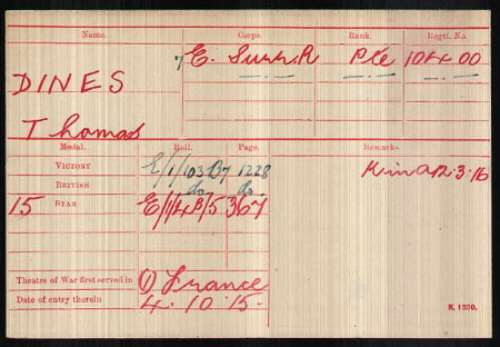 Name. Corps. Rank. Regtl. No.
7/E. Surr. R Pte 10400
DINES
Thomas
Medal. Roll. Page. Remarks.
VICTORY E/1/103B7 1228
BRITISH do do
15 STAR E/1/4B/5 367
12.3.16
Theatre of War first served in (1) France
Date of entry therein 4.10.15.
K. 1380.